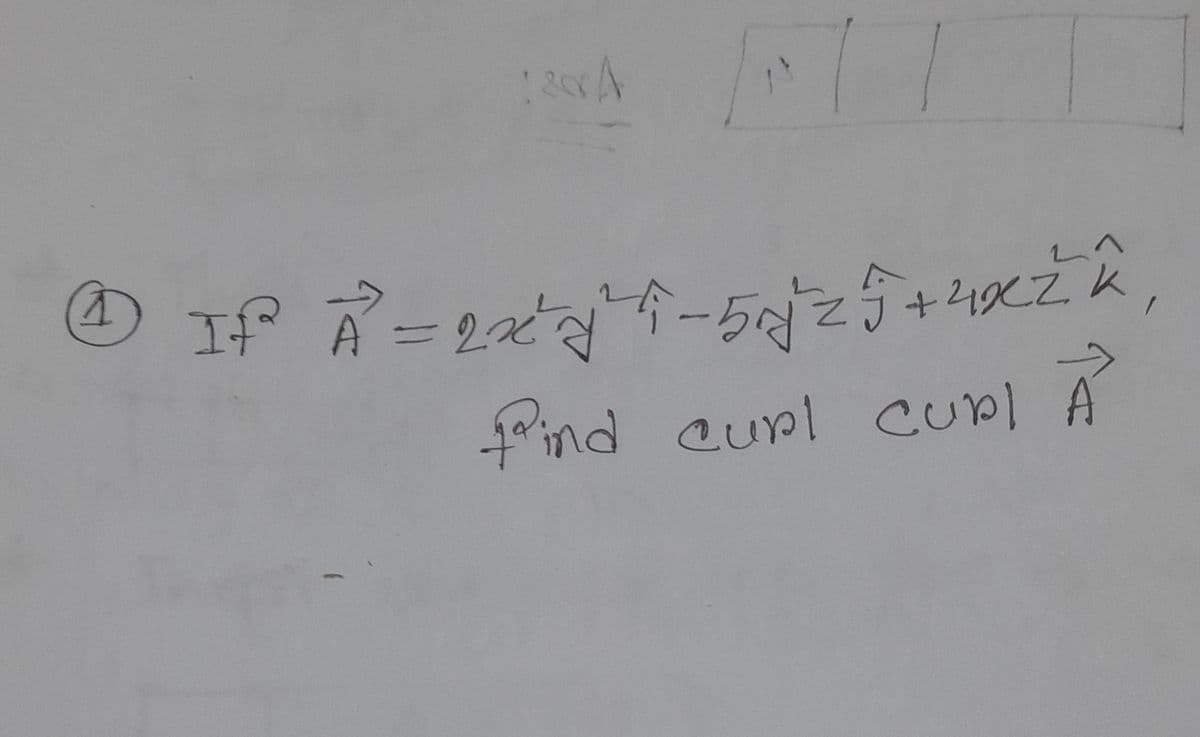 ① If A⃗ = 2x²y² î - 5y²z ĵ + 4xz² k̂,
find curl curl A⃗